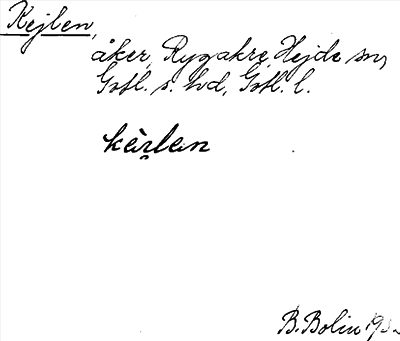 Kejlen,
åker, Rygakre, Hejde sn,
Gotl. s. hd, Gotl. l.
kèrlen
B. Bolin 193